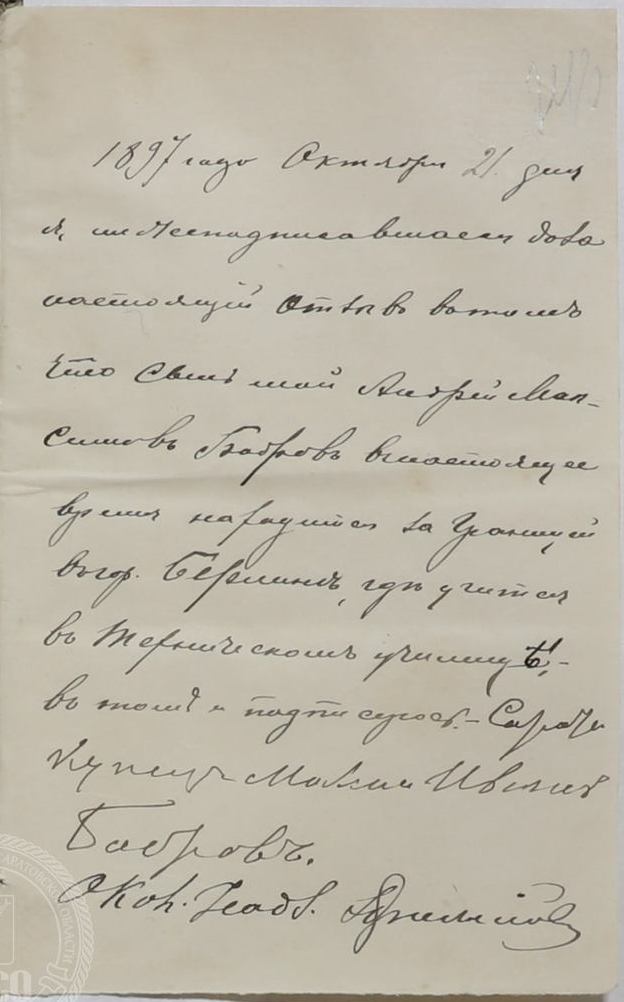 1897 года Октября 21. дня
я, нижеподписавшаеся дова
настоящий отзывъ вотомъ
что Сынъ мой Андрей Мак-
симовъ Бобровъ внастоящее
время находится за границей
вгор. Берлинъ, гдѣ учится
въ Техническомъ училищѣ,-
въ томъ и подписуюсь.- Сарат
Купецъ Максим Ивановъ
Бобровъ.
Окол. Надз.
АРАТОВСКО ОБЛАСТИ